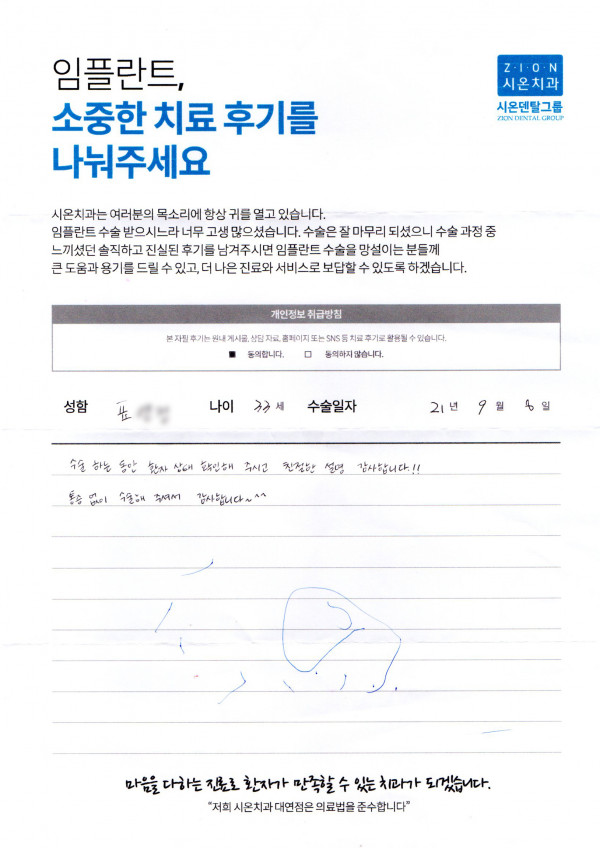 임플란트,
Z·I·O·N
시온치과
소중한 치료 후기를
시온덴탈그룹
ZION DENTAL GROUP
나눠주세요
시온치과는 여러분의 목소리에 항상 귀를 열고 있습니다.
임플란트 수술 받으시느라 너무 고생 많으셨습니다. 수술은 잘 마무리 되셨으니 수술 과정 중
느끼셨던 솔직하고 진실된 후기를 남겨주시면 임플란트 수술을 망설이는 분들께
큰 도움과 용기를 드릴 수 있고, 더 나은 진료와 서비스로 보답할 수 있도록 하겠습니다.
개인정보 취급방침
본 자필 후기는 원내 게시물, 상담 자료, 홈페이지 또는 SNS 등 치료 후기로 활용될 수 있습니다.
■ 동의합니다. □ 동의하지 않습니다.
성함 표 나이 33 세 수술일자 21 년 9 월 8 일
수술 하는 동안 환자 상태 확인해 주시고 친절한 설명 감사합니다!!
통증 없이 수술해 주셔서 감사합니다~^^
마음을 다하는 진료로 환자가 만족할 수 있는 치과가 되겠습니다.
"저희 시온치과 대연점은 의료법을 준수합니다"